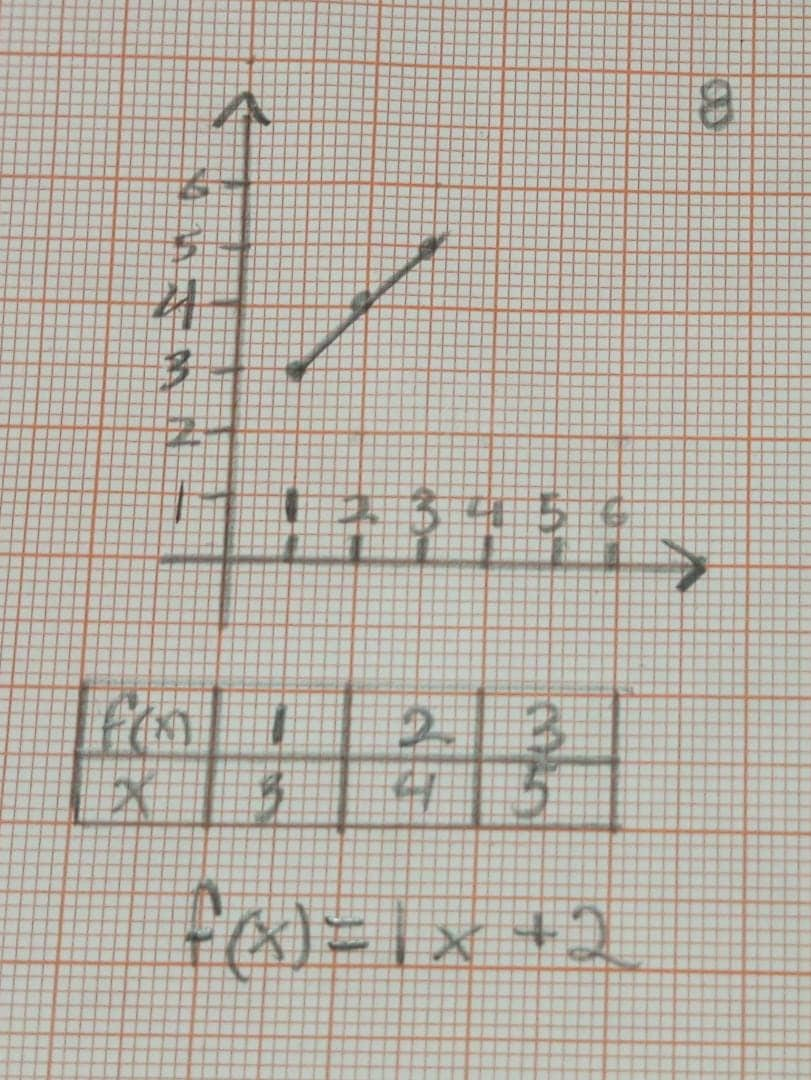 8
6
5
4
3
2
1 1 2 3 4 5 6
f(x) 1 2 3
x 3 4 5
f(x) = 1x + 2